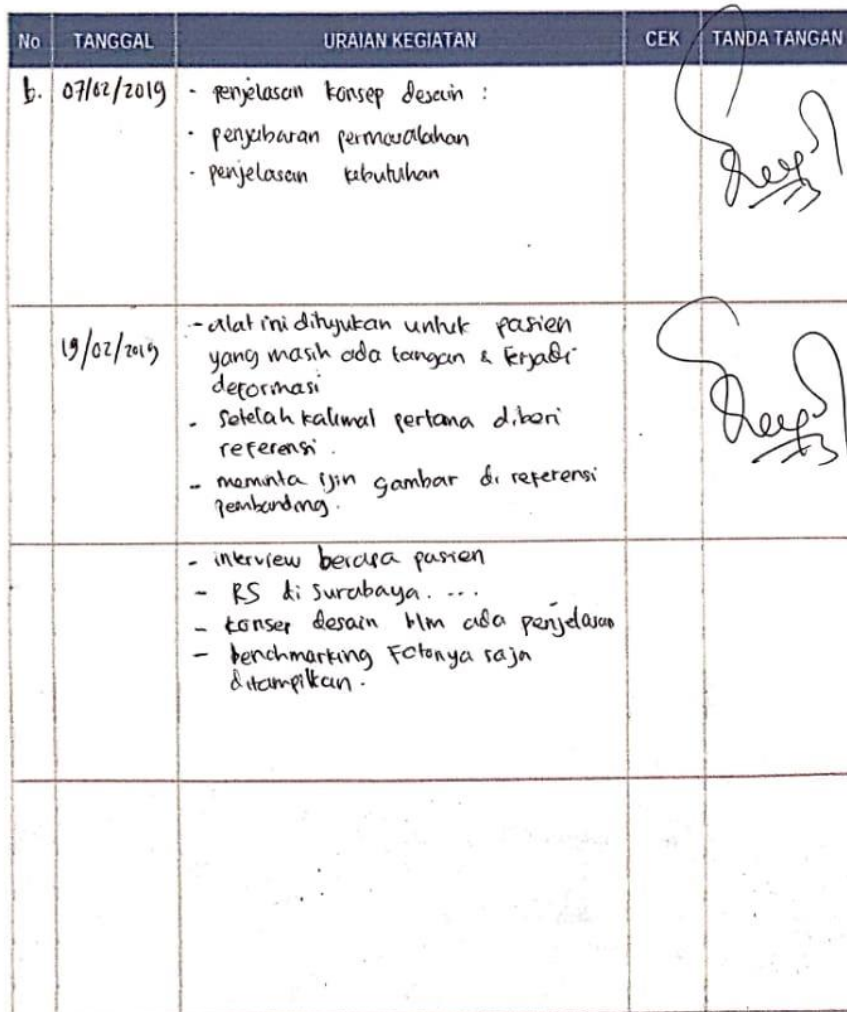 No TANGGAL URAIAN KEGIATAN CEK TANDA TANGAN
6. 07/02/2019 - penjelasan konsep desain :
- penjabaran permasalahan
- penjelasan kebutuhan
19/02/2019 - alat ini ditujukan untuk pasien
yang masih ada tangan & terjadi
deformasi
- Setelah kalimat pertama diberi
referensi.
- meminta ijin gambar di referensi
pembanding.
- interview berapa pasien
- RS di Surabaya. ...
- konsep desain blm ada penjelasan
- benchmarking Fotonya saja
ditampilkan.